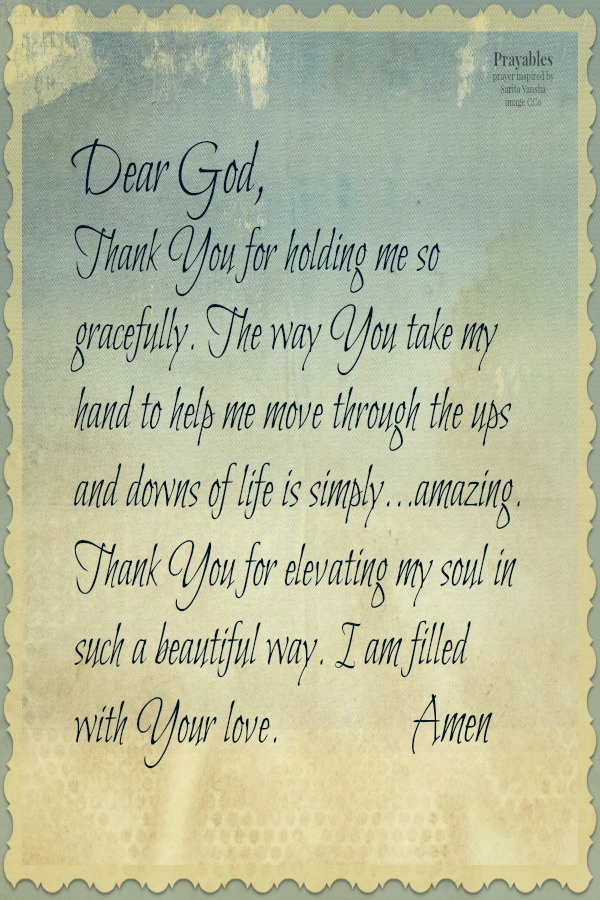 Prayables
prayer inspired by
Sarita Vansha
image CC0
Dear God,
Thank You for holding me so
gracefully. The way You take my
hand to help me move through the ups
and downs of life is simply...amazing.
Thank You for elevating my soul in
such a beautiful way. I am filled
with Your love. Amen